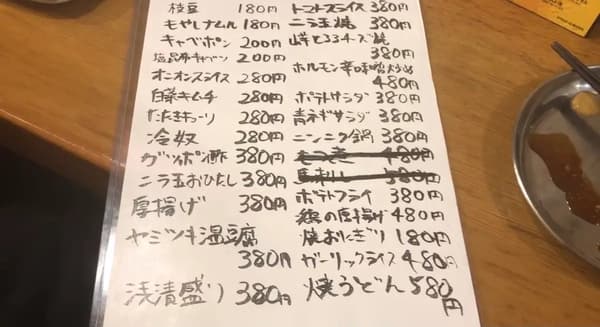 枝豆 180円
もやしナムル 180円
キャベポン 200円
塩昆布キャベツ 200円
オニオンスライス 280円
白菜キムチ 280円
たたきキューリ 280円
冷奴 280円
ガツポン酢 380円
ニラ玉おひたし 380円
厚揚げ 380円
ヤミツキ温豆腐
380円
浅漬盛り 380円
トマトスライス 380円
ニラ玉焼 380円
チーズ焼
380円
ホルモン辛味噌
480円
ポテトサラダ 380円
青ネギサラダ 380円
ニンニク鍋 380円
480円
馬刺し 580円
ポテトフライ 380円
の厚揚げ 480円
焼おにぎり 180円
ガーリックライス 480円
焼うどん 580円